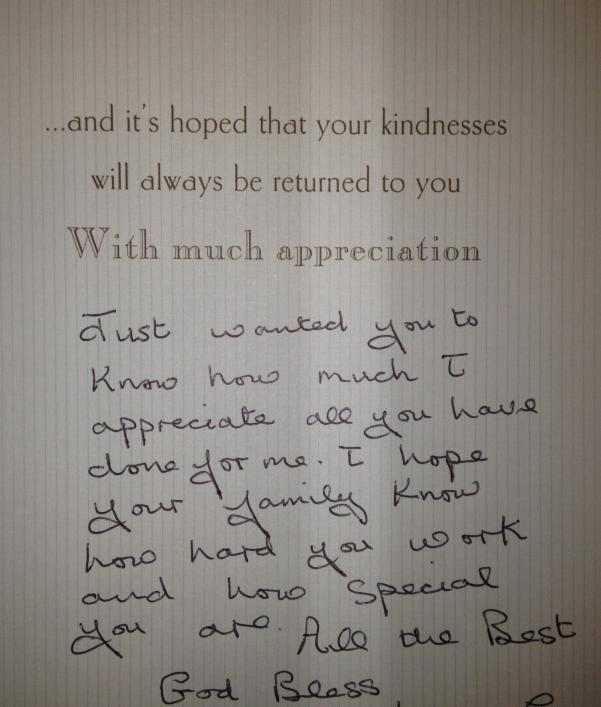 ...and it's hoped that your kindnesses
will always be returned to you
With much appreciation
Just wanted you to
Know how much I
appreciate all you have
done for me. I hope
your family Know
how hard you work
and how Special
you are. All the Best
God Bless